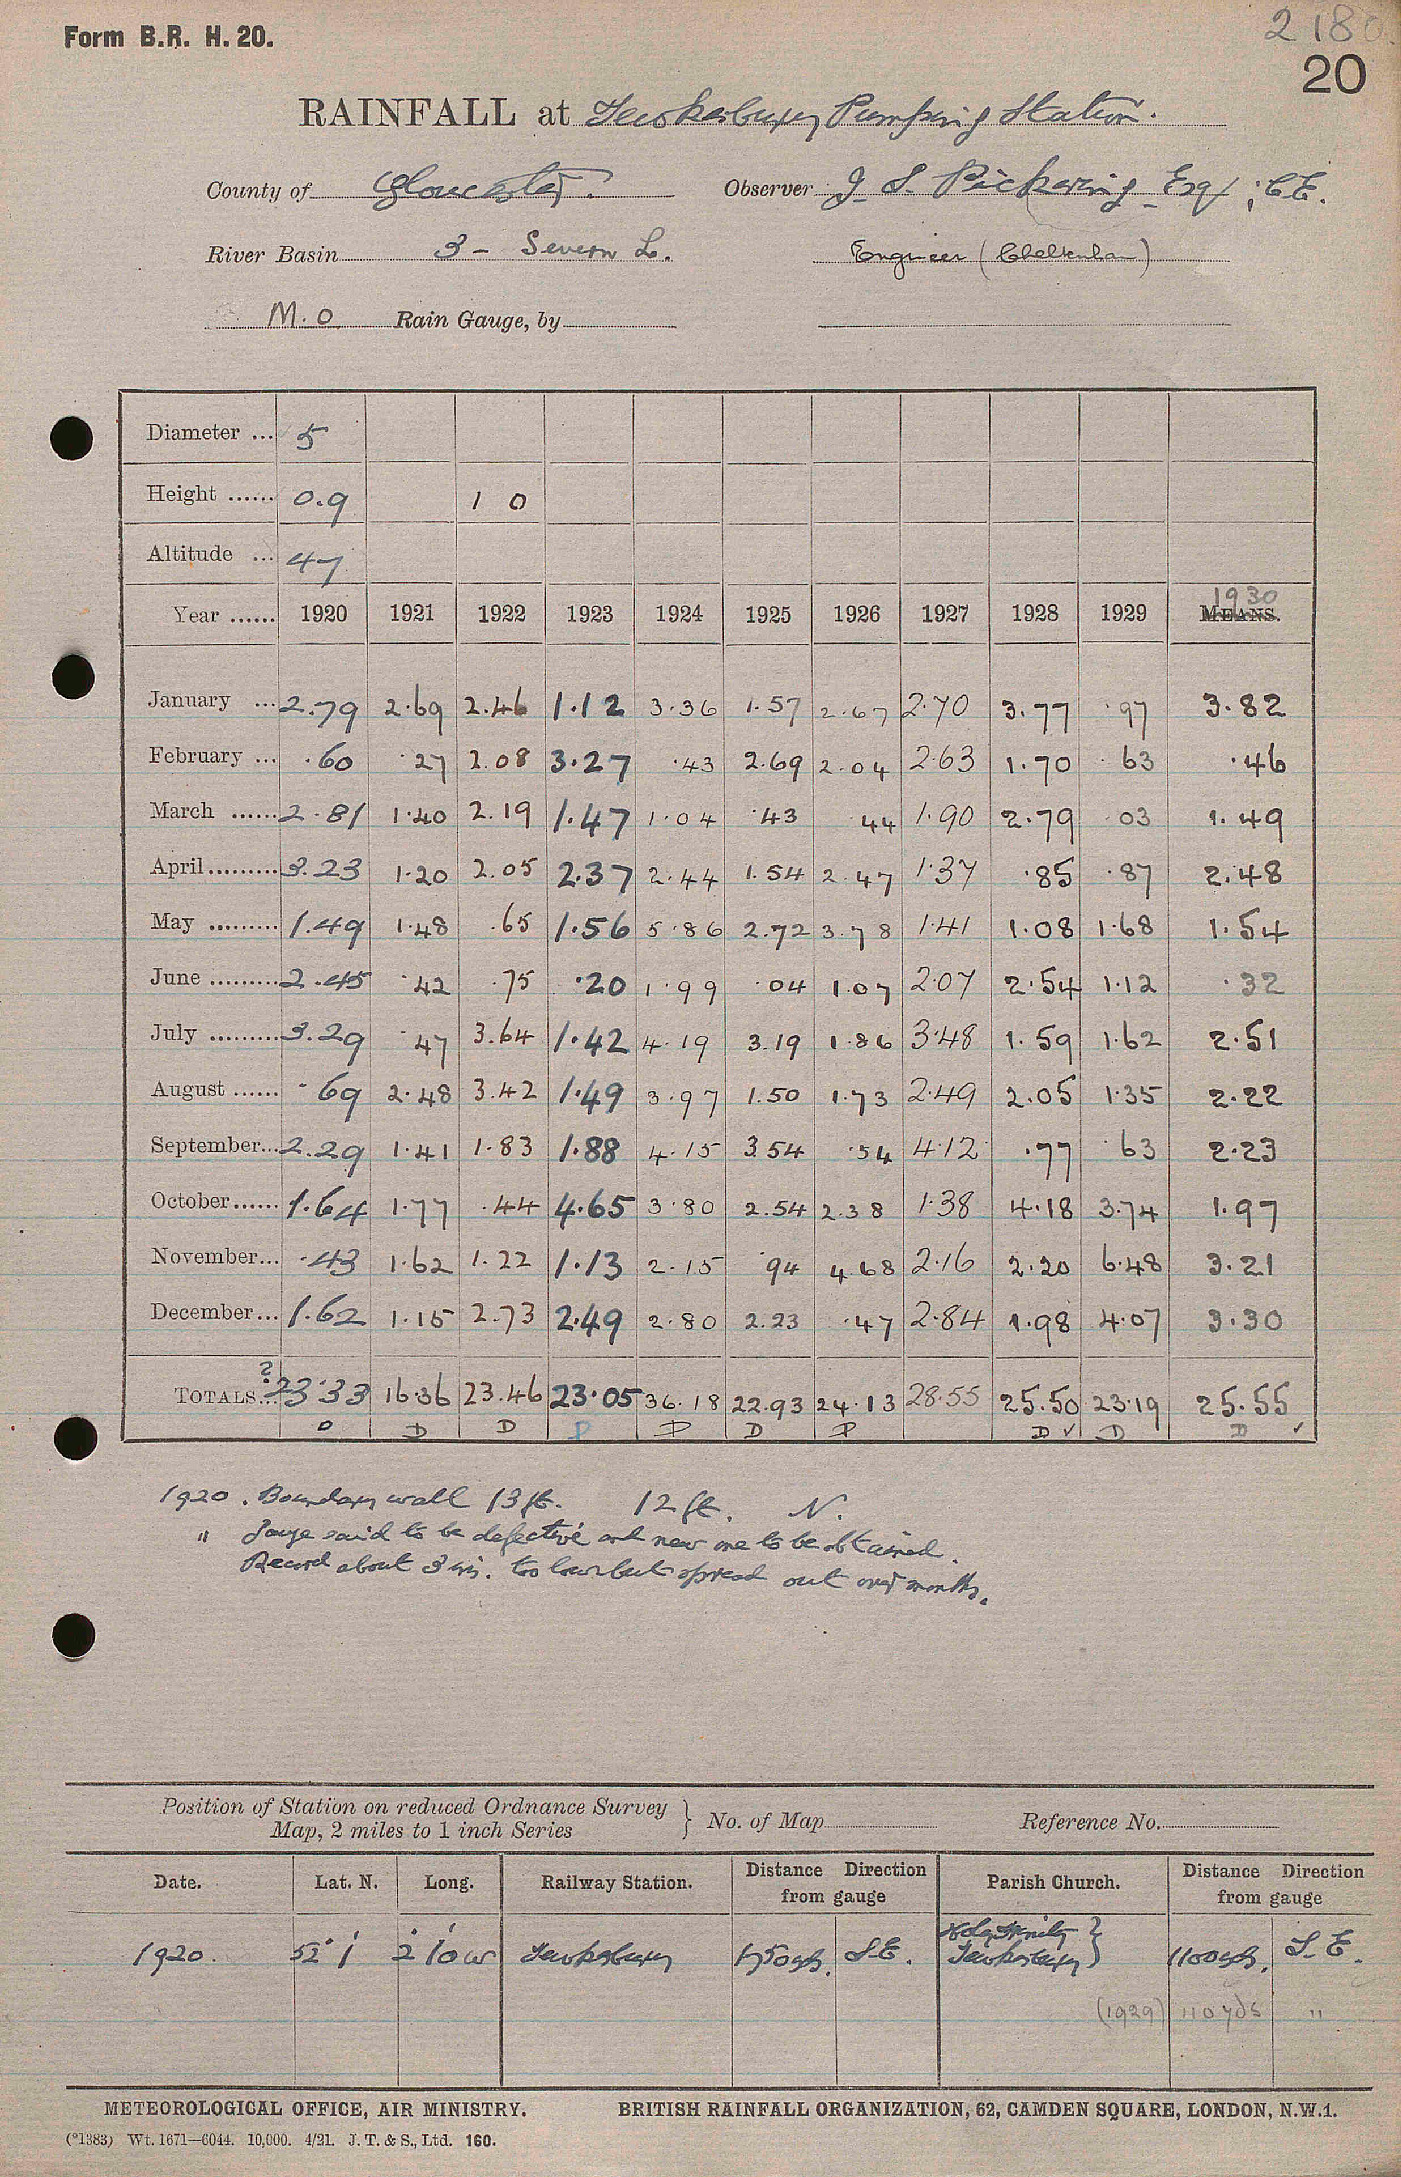 Form B.R. H. 20.
2180
20
RAINFALL at Tewkesbury Pumping Station.
County of Gloucester. Observer J. S. Pickering Esq; C.E.
River Basin 3 - Severn L. Engineer (Cheltenham)
M.O Rain Gauge, by
Diameter ... 5
Height ...... 0.9 1 0
Altitude ... 47
1930
Year ...... 1920 1921 1922 1923 1924 1925 1926 1927 1928 1929 MEANS.
January ... 2.79 2.69 2.46 1.12 3.36 1.57 2.67 2.70 3.77 .97 3.82
February ... .60 .27 2.08 3.27 .43 2.69 2.04 2.63 1.70 .63 .46
March ...... 2.81 1.40 2.19 1.47 1.04 .43 .44 1.90 2.79 .03 1.49
April ......... 3.23 1.20 2.05 2.37 2.44 1.54 2.47 1.37 .85 .87 2.48
May ......... 1.49 1.48 .65 1.56 5.86 2.72 3.78 1.41 1.08 1.68 1.54
June ......... 2.45 .42 .75 .20 1.99 .04 1.07 2.07 2.54 1.12 .32
July ......... 3.29 .47 3.64 1.42 4.19 3.19 1.86 3.48 1.59 1.62 2.51
August ...... .69 2.48 3.42 1.49 3.97 1.50 1.73 2.49 2.05 1.35 2.22
September... 2.29 1.41 1.83 1.88 4.15 3.54 .54 4.12 .77 .63 2.23
October ...... 1.64 1.77 .44 4.65 3.80 2.54 2.38 1.38 4.18 3.74 1.97
November... .43 1.62 1.22 1.13 2.15 .94 4.68 2.16 2.20 6.48 3.21
December... 1.62 1.15 2.73 2.49 2.80 2.23 .47 2.84 1.98 4.07 3.30
?
TOTALS... 23.33 16.36 23.46 23.05 36.18 22.93 24.13 28.55 25.50 23.19 25.55
D D D D D D D D ✓ D D ✓
1920. Boundary wall 13 ft. 12 ft. N.
" Gauge said to be defective and new one to be obtained.
Record about 3 in. too low but spread out over months.
Position of Station on reduced Ordnance Survey Map, 2 miles to 1 inch Series } No. of Map Reference No.
Date. Lat. N. Long. Railway Station. Distance Direction from gauge Parish Church. Distance Direction from gauge
1920. 52° 1' 2° 10' W Tewkesbury 1750 yds. S.E. Holy Trinity Tewkesbury } 1100 yds. S.E.
(1929) 110 yds "
METEOROLOGICAL OFFICE, AIR MINISTRY. BRITISH RAINFALL ORGANIZATION, 62, CAMDEN SQUARE, LONDON, N.W.1.
(*1383) Wt. 1671—6044. 10,000. 4/21. J. T. & S., Ltd. 160.